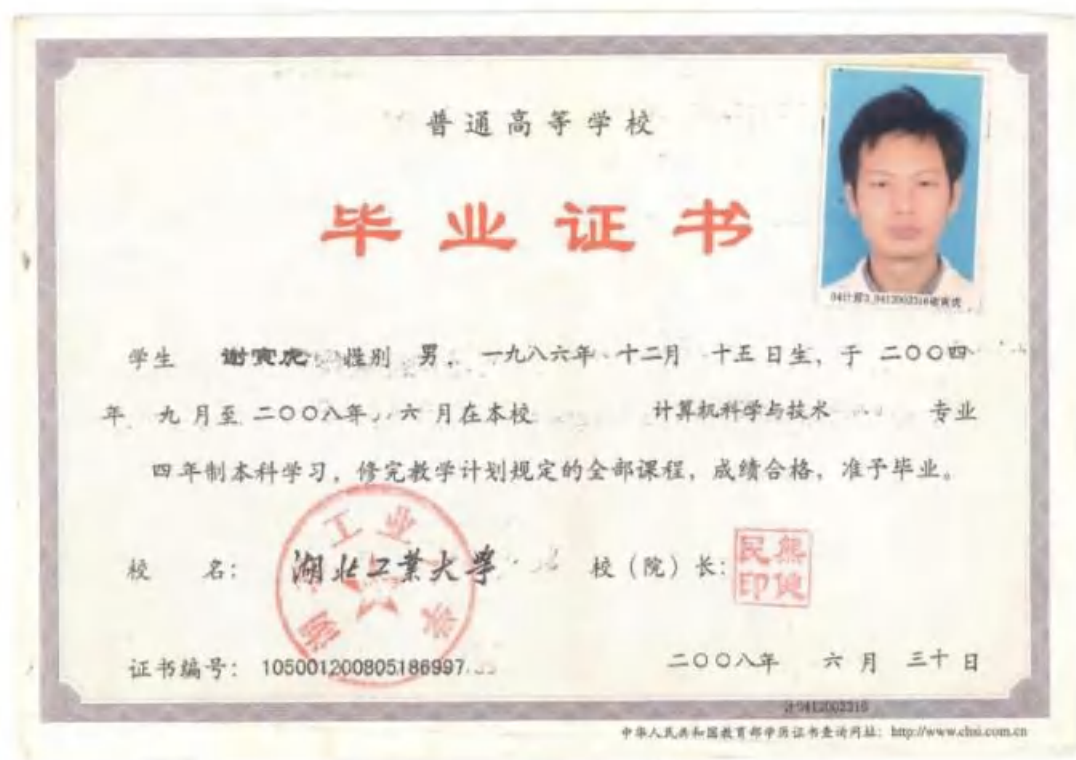 普通高等学校
毕业证书
04计算3_0412002316谢寅虎
学生 谢寅虎 性别 男, 一九八六年 十二月 十五日生, 于 二〇〇四
年 九 月至 二〇〇八年 六 月在本校 计算机科学与技术 专业
四年制本科学习, 修完教学计划规定的全部课程, 成绩合格, 准予毕业。
校 名: 湖北工業大學 校(院)长: 熊健民印
湖北工业大学
证书编号: 105001200805186997
二〇〇八年 六 月 三十 日
中华人民共和国教育部学历证书查询网址: http://www.chsi.com.cn